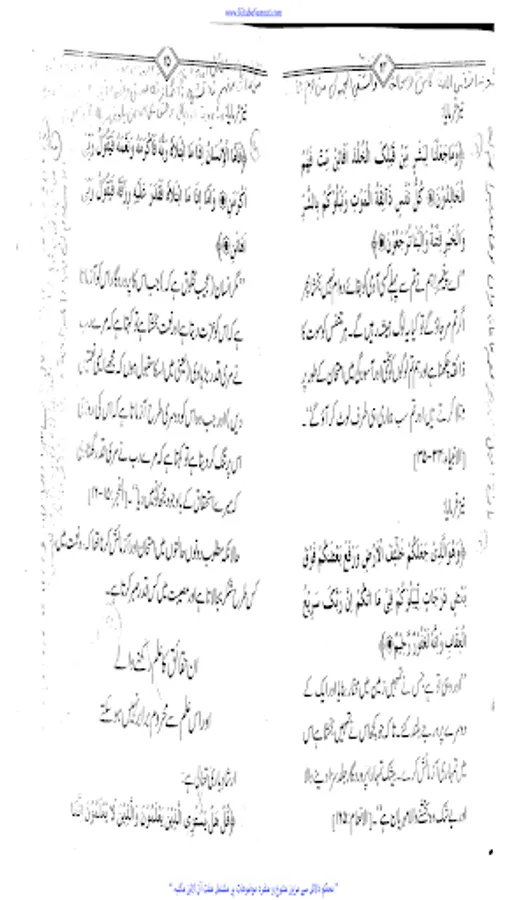 www.KitaboSunnat.com
۶۴
نیز فرمایا:
﴿وَمَا جَعَلْنَا لِبَشَرٍ مِّنْ قَبْلِكَ الْخُلْدَ أَفَإِنْ مِّتَّ فَهُمُ
الْخَالِدُوْنَ كُلُّ نَفْسٍ ذَآئِقَةُ الْمَوْتِ وَنَبْلُوْكُمْ بِالشَّرِّ
وَالْخَيْرِ فِتْنَةً وَإِلَيْنَا تُرْجَعُوْنَ﴾
"اے پیغمبر! ہم نے تم سے پہلے کسی آدمی کو بقائے دوام نہیں بخشا، پھر
اگر تم مر جاؤ گے تو کیا یہ لوگ ہمیشہ رہیں گے۔ ہر متنفس کو موت کا
ذائقہ چکھنا ہے اور ہم تم لوگوں کو سختی اور آسودگی میں امتحان کے طور پر
مبتلا کرتے ہیں اور تم سب ہماری ہی طرف لوٹ کر آؤ گے"۔
[الانبیاء: ۳۴-۳۵]
نیز فرمایا:
﴿وَهُوَ الَّذِیْ جَعَلَكُمْ خَلٰٓئِفَ الْأَرْضِ وَرَفَعَ بَعْضَكُمْ فَوْقَ
بَعْضٍ دَرَجَاتٍ لِّيَبْلُوَكُمْ فِیْ مَا آتٰكُمْ إِنَّ رَبَّكَ سَرِيْعُ
الْعِقَابِ وَإِنَّهُ لَغَفُوْرٌ رَّحِيْمٌ﴾
"اور وہی تو ہے جس نے تمہیں زمین میں اختیار دیا اور ایک کے
دوسرے پر درجے بلند کئے۔ تاکہ جو کچھ اس نے تمہیں بخشا ہے اس
میں تمہاری آزمائش کرے۔ بیشک تمہارا پروردگار جلد سزا دینے والا
اور بے شک وہ بخشنے والا مہربان ہے"۔ [الانعام: ۱۶۵]
۶۵
نیز فرمایا:
﴿فَأَمَّا الْإِنْسَانُ إِذَا مَا ابْتَلَاهُ رَبُّهُ فَأَكْرَمَهُ وَنَعَّمَهُ فَيَقُوْلُ رَبِّیْ
أَكْرَمَنِ وَأَمَّا إِذَا مَا ابْتَلَاهُ فَقَدَرَ عَلَيْهِ رِزْقَهُ فَيَقُوْلُ رَبِّیْ
أَهَانَنِ﴾
"مگر انسان (عجیب مخلوق ہے کہ) جب اس کا پروردگار اس کو آزماتا
ہے کہ اس کو عزت دیتا ہے اور نعمت بخشتا ہے تو کہتا ہے کہ میرے رب
نے میری قدر بڑھا دی (یعنی میں اس کا مستحق ہوں کہ مجھے ایسی نعمتیں
دیں) اور جب وہ اس کو دوسری طرح آزماتا ہے کہ اس کی روزی
اس پر تنگ کر دیتا ہے تو کہتا ہے کہ میرے رب نے میری قدر گھٹا دی
کہ میرے استحقاق کے باوجود مجھ کو نہیں دیا"۔ [الفجر: ۱۵-۱۶]
حالانکہ مطلب دونوں حالتوں میں امتحان اور آزمائش کرنا تھا کہ وہ نعمت میں
کس طرح شکر بجا لاتا ہے اور مصیبت میں کس قدر صبر کرتا ہے۔
ان حقائق کا علم رکھنے والے
اور اس علم سے محروم برابر نہیں ہو سکتے
ارشادِ باری تعالیٰ ہے:
﴿قُلْ هَلْ يَسْتَوِی الَّذِيْنَ يَعْلَمُوْنَ وَالَّذِيْنَ لَا يَعْلَمُوْنَ إِنَّمَا
"محکم دلائل سے مزین متنوع و منفرد موضوعات پر مشتمل مفت آن لائن مکتبہ"